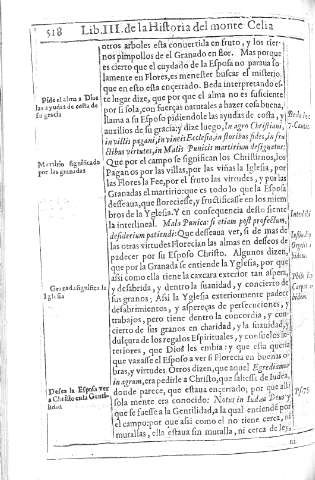 518 Lib. III. de la Historia del monte Celia
otros arboles esta conuertida en fruto, y los tier-
nos pimpollos de el Granado en flor. Mas porque
es cierto que el cuydado de la Esposa no paraua so-
lamente en Flores, es menester buscar el misterio,
que en esto esta encerrado. Beda interpretando es-
te legar dize, que por que el alma no es suficiente
por si sola, con fuerças naturales a hazer cosa buena,
llama a su Esposo pidiendole las ayudas de costa, y
auxilios de su gracia: y dize luego, In agro Christiani,
in villis pagani, in vineis Ecclesia, in floribus fides, in fru
ctibus virtutes, in Malis Punicis martirium designatur:
Que por el campo se significan los Christianos, los
Paganos por las villas, por las viñas la Iglesia, por
las Flores la Fee, por el fruto las virtudes, y por las
Granadas el martirio: que es todo lo que la Esposa
desseaua, que floreciesse, y fructificasse en los miem
bros de la Yglesia. Y en consequencia desto siente
la interlineal. Mala Punica: si etiam post profectum,
desiderent patiendi: Que desseaua ver, si de mas de
las otras virtudes Florecian las almas en desseos de
padecer por su Esposo Christo. Algunos dizen,
que por la Granada se entiende la Yglesia, por que
assi como ella tiene la cuteza exterior tan aspera,
y desabrida, y dentro la suauidad, y concierto de
sus granos; Assi la Yglesia exteriormente padece
desabrimientos, y asperezas de persecuciones, y
trabajos, pero tiene dentro la concordia, y con-
cierto de sus granos en charidad, y la suauidad, y
dulçura de los regalos Espirituales, y consuelos in-
teriores, que Dios les embia: y que esta queria
que vaxasse el Esposo a ver si Florecia en buenas o-
bras, y virtudes. Otros dizen, que aquel Egrediamur
in agrum, era pedirle a Christo, que saliesse de Iudea,
donde parece, que estaua encerrado; por que alli
sola mente era conocido: Notus in Iudæa Deus y
que se fuesse a la Gentilidad, a la qual entiende por
el campo: por que assi como el no tiene cerca, ni
murallas, ella estaua sin muralla, ni cerca de ley,
Pide el alma a Dios
las ayudas de costa de
su gracia
Martirio significado
por las granadas
Granada significa la
Iglesia
Dessea la Esposa ver
a Christo en la Genti-
lidad.